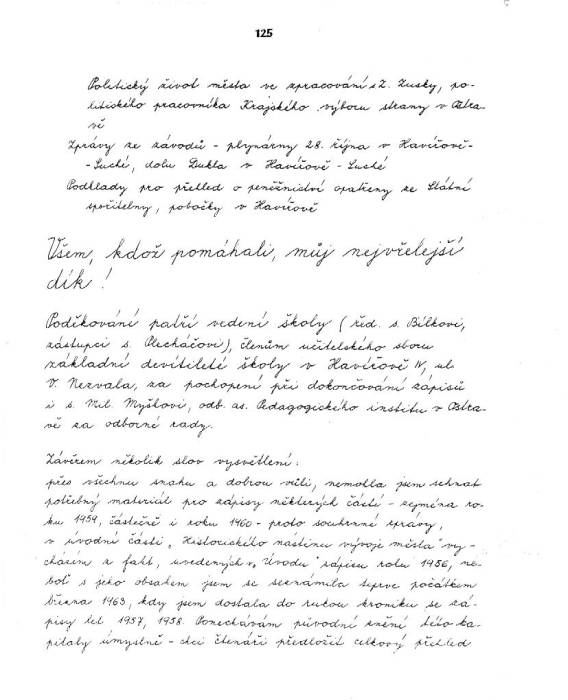 125
Politický život města ve zpracování s Z. Zusky, po-
litického pracovníka Krajského výboru strany v Ostra-
vě
Zprávy ze závodů - plynárny 28. října v Havířově-
-Suché, dolu Dukla v Havířově - Suché
Podklady pro přehled o peněžnictví opatřeny ze Státní
spořitelny, pobočky v Havířově
Všem, kdož pomáhali, můj nejvřelejší
dík!
Poděkování patří vedení školy (řed. s. Bílkovi,
zástupci s. Plecháčovi), členům učitelského sboru
základní devítileté školy v Havířově IV, ul.
V. Nezvala, za pochopení při dokončování zápisů
i s. Mil. Myškovi, odb. as. Pedagogického institutu v Ostra-
vě za odborné rady.
Závěrem několik slov vysvětlení:
přes všechnu snahu a dobrou vůli, nemohla jsem sehnat
potřebný materiál pro zápisy některých částí - zejména ro-
ku 1959, částečně i roku 1960 - proto souhrnné zprávy,
v úvodní části „Historického nástinu vývoje města" vy-
cházím z fakt, uvedených v „Úvodu" zápisu roku 1956, ne-
boť s jeho obsahem jsem se seznámila teprve počátkem
března 1963, kdy jsem dostala do rukou kroniku se zá-
pisy let 1957, 1958. Ponechávám původní znění této ka-
pitoly úmyslně - chci čtenáři předložit celkový přehled